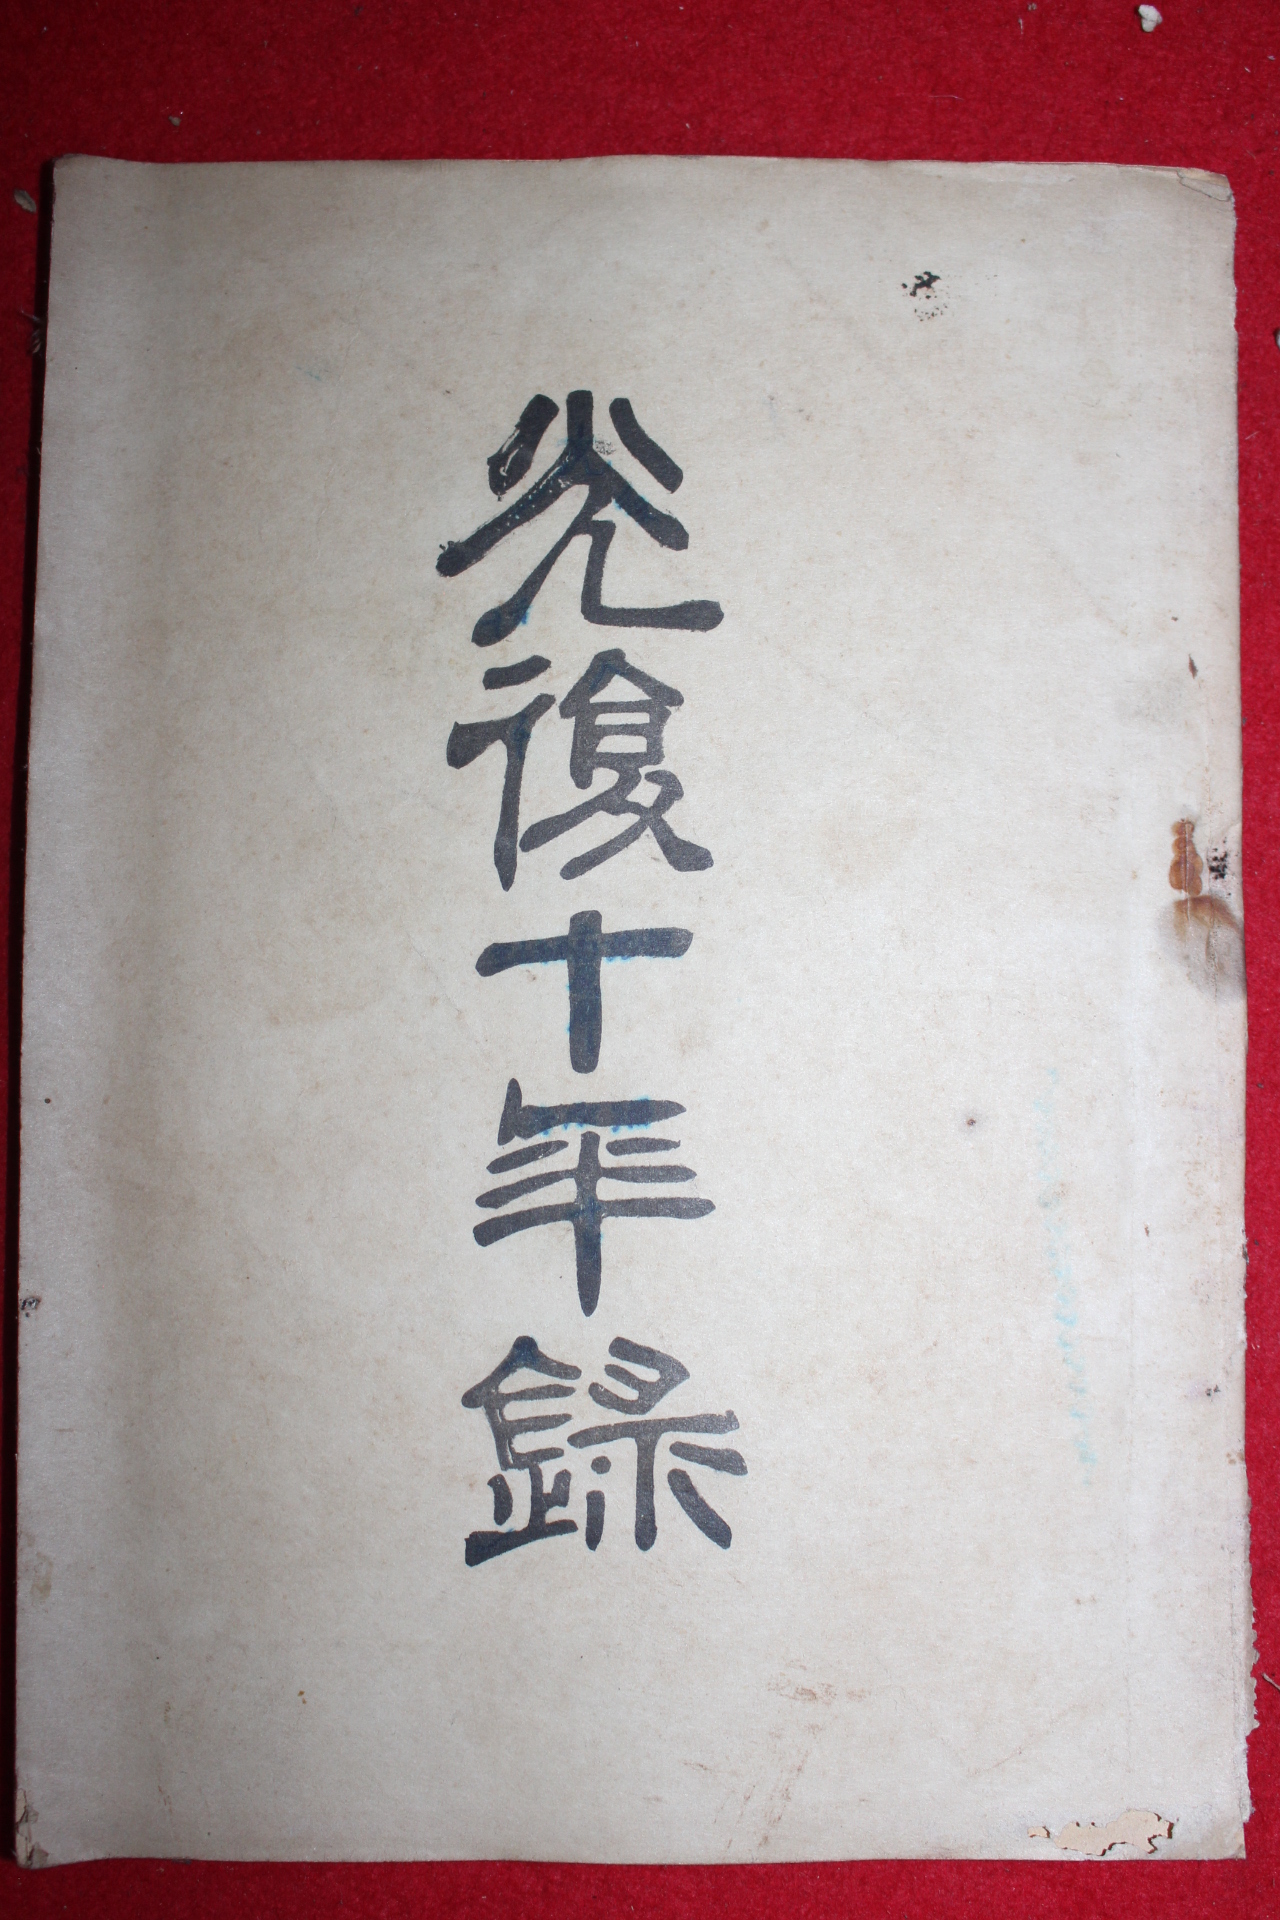 光復十年錄